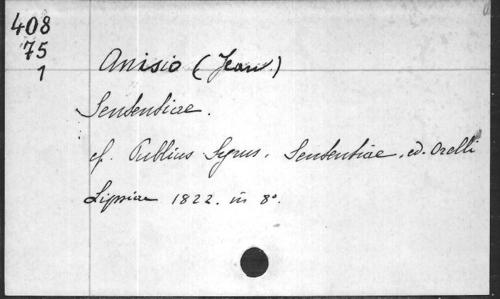 408
75
1
Anisio (Jean.)
Sententiae.
cf. Publius Syrus. Sententiae, ed. Orelli
Lipsiae 1822. in 8°.